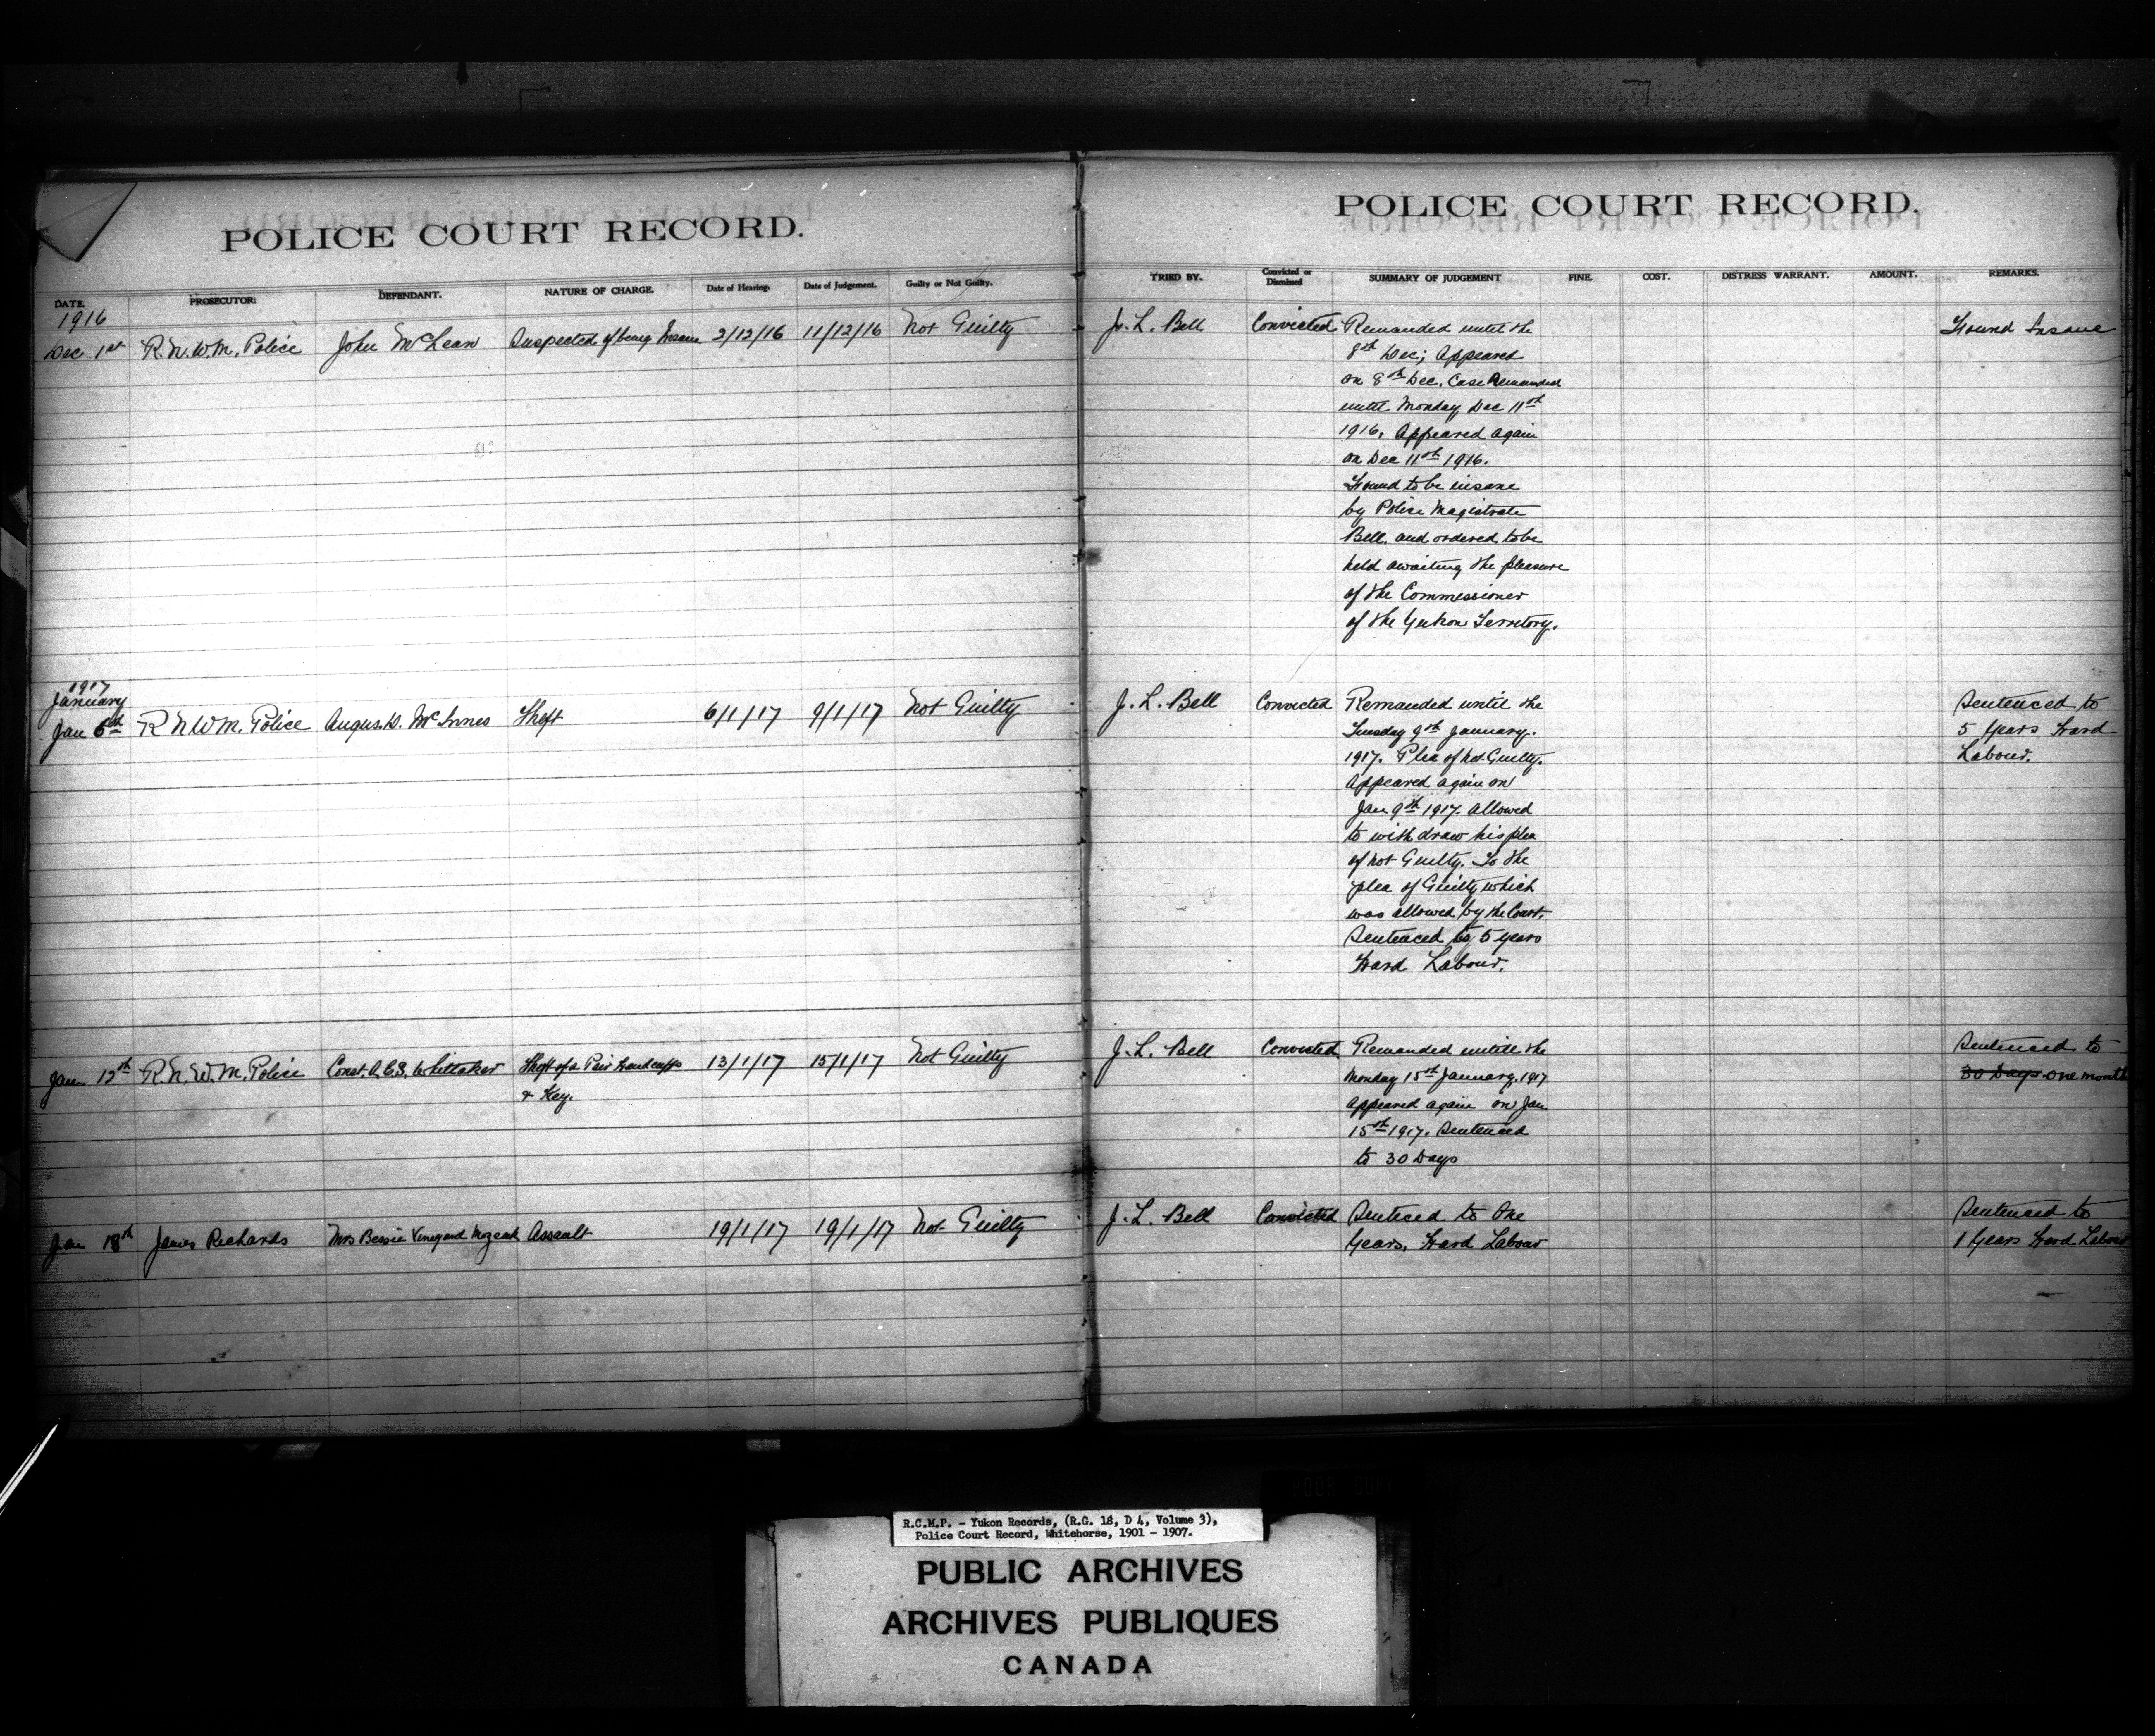 POLICE COURT RECORD.
DATE. PROSECUTOR: DEFENDANT. NATURE OF CHARGE. Date of Hearing. Date of Judgement. Guilty or Not Guilty.
1916
Dec 1st R.N.W.M. Police John McLean Suspected of being Insane 2/12/16 11/12/16 Not Guilty
1917
January
Jan 6th R N W M. Police Angus. D. McInnes Theft 6/1/17 9/1/17 Not Guilty
Jan 12th R.N.W.M. Police Const. Whittaker Theft of a Pair Handcuffs 13/1/17 15/1/17 Not Guilty
& Key.
Jan 18th James Richards Mrs Bessie Vineyard Assault 19/1/17 19/1/17 Not Guilty
POLICE COURT RECORD.
TRIED BY. Convicted or Dismissed SUMMARY OF JUDGEMENT FINE. COST. DISTRESS WARRANT. AMOUNT. REMARKS.
J. L. Bell Convicted Remanded until the Found Insane
8th Dec; Appeared
on 8th Dec. Case Remanded
until Monday Dec 11th
1916. Appeared again
on Dec 11th 1916.
Found to be insane
by Police Magistrate
Bell. and ordered to be
held awaiting the pleasure
of the Commissioner
of the Yukon Territory.
J. L. Bell Convicted Remanded until the Sentenced to
Tuesday 9th January. 5 Years Hard
1917. Plea of not Guilty. Labour.
Appeared again on
Jan 9th 1917. Allowed
to with draw his plea
of not Guilty. To the
plea of Guilty which
was allowed by the Court.
Sentenced to 5 years
Hard Labour.
J. L. Bell Convicted Remanded untill the Sentenced to
Monday 15th January. 1917 30 Days one month
Appeared again on Jan
15th 1917. Sentenced
to 30 Days
J. L. Bell Convicted Senteced to One Sentenced to
Years, Hard Labour 1 Years Hard Labour
R.C.M.P. - Yukon Records, (R.G. 18, D 4, Volume 3),
Police Court Record, Whitehorse, 1901 - 1907.
PUBLIC ARCHIVES
ARCHIVES PUBLIQUES
CANADA